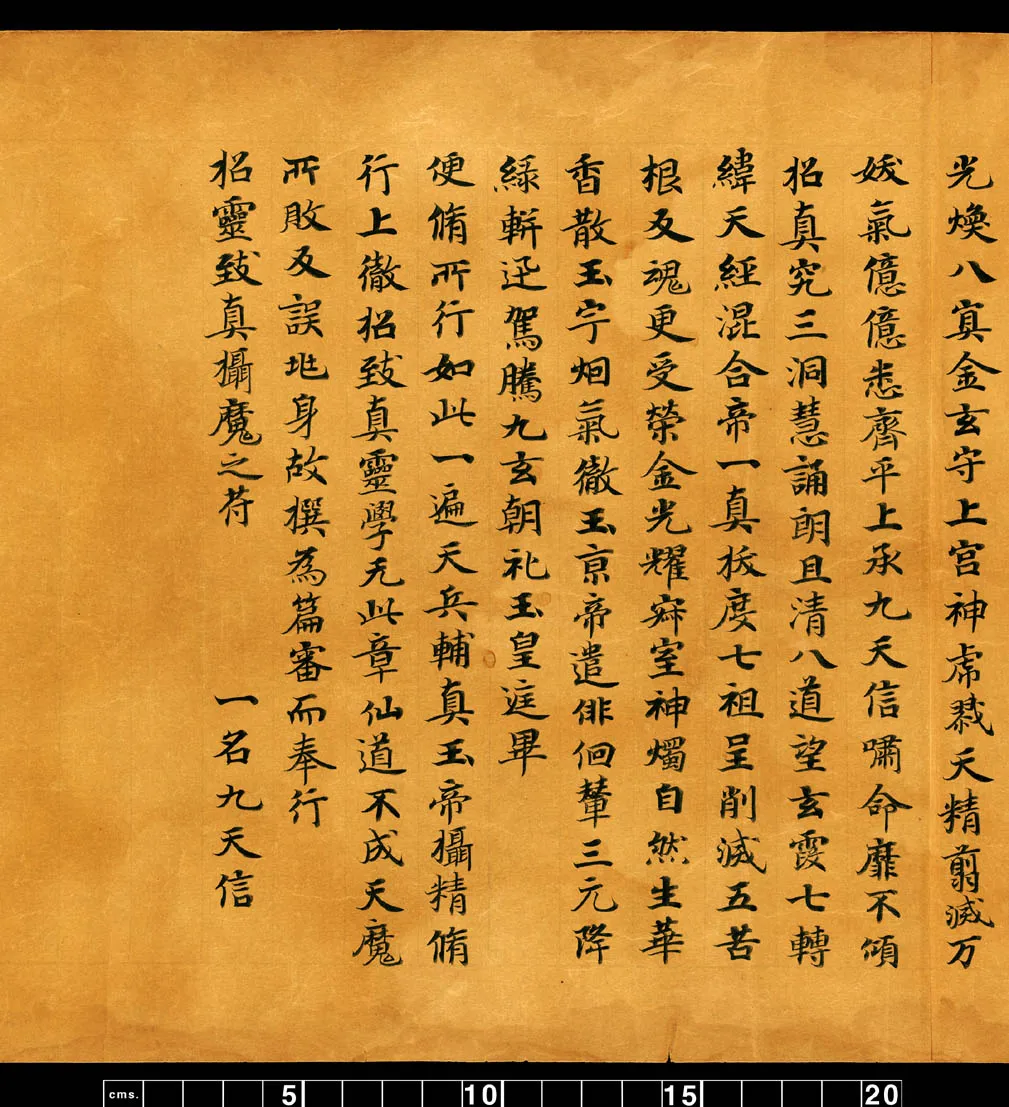 光煥八冥金玄守上宮神虎戮天精翦滅万
妖氣億億悉齊平上承九天信嘯命靡不傾
招真究三洞慧誦朗且清八道望玄霞七轉
緯天經混合帝一真拔度七祖呈削滅五苦
根反魂更受榮金光耀寂室神燭自然生華
香散玉宇烟氣徹玉京帝遣徘徊輦三元降
緑軿迅駕騰九玄朝礼玉皇庭畢
便脩所行如此一遍天兵輔真玉帝攝精脩
行上徹招致真靈學无此章仙道不成天魔
所敗反誤地身故撰為篇審而奉行
招靈致真攝魔之符 一名九天信
cms. 5 10 15 20